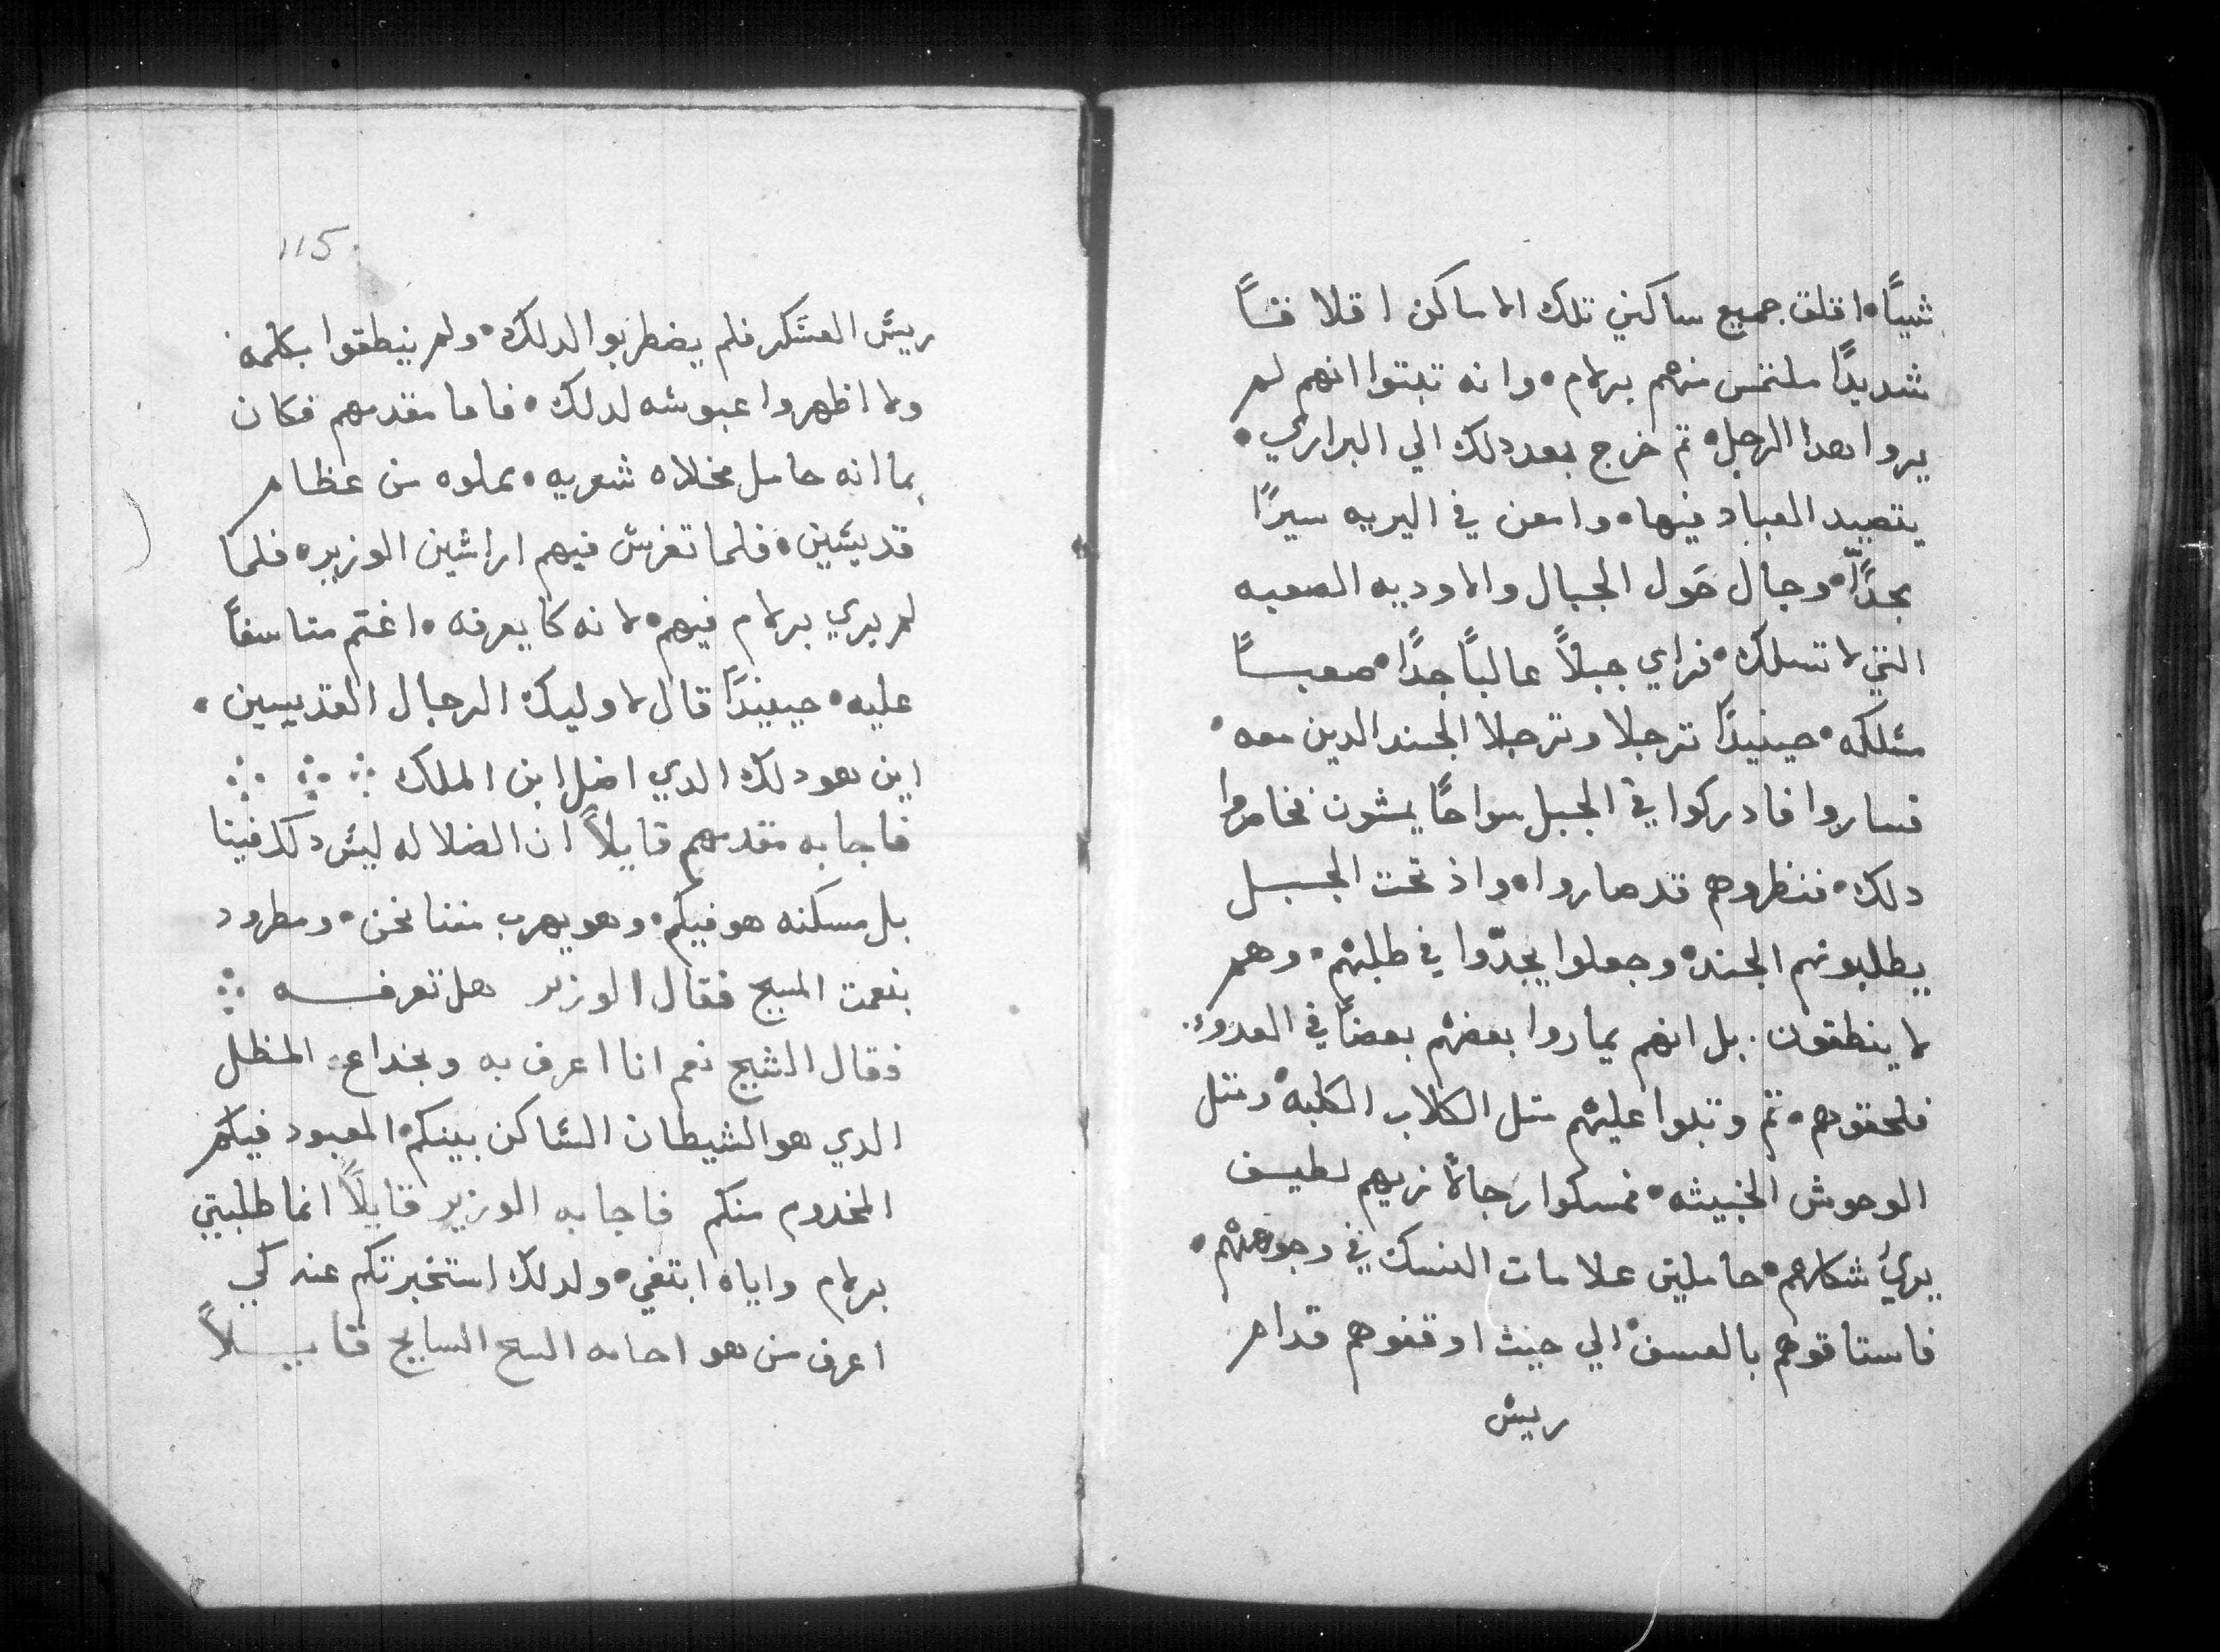 شيئًا• اقلق جميع ساكني تلك الاماكن اقلاقًا
شديدًا ملتمس منهم برلام• وانه تبتوا انهم لم
يروا هدا الرجل• تم خرج بعد دلك الي البراري•
يتصيد العباد فيها• وامعن في البريه سيرًا
بجدًّا• وجال حَول الجبال والاوديه الصعبه
التي لا تسلك• فراي جبلاً عاليًا جدًا• صعبًا
مسلكه• حينيدًا ترجلا وترجلا الجند الدين معه•
فساروا فادركوا في الجبل سواحًا يمشون
دلك• فنظروهم قد صاروا• واذ تحت الجبل
يطلبونهم الجند• وجعلوا يجدّوا في طلبهم• وهم
لا ينطقون. بل انهم يماروا بعضهم بعضًا في العدو.
فلحقوهم• تم وتبوا عليهم متل الكلاب الكلبه• ومتل
الوحوش الخبيثه• فمسكوا رجالاً زيهم لطيف
يري شكلهم• حاملين علامات النسك في وجوههم•
فاستاقوهم بالعسف• الي حيث اوقفوهم قدام
رييس
115
رييس العسكر فلم يضطربوا لدلك• ولم ينطقوا بكلمه
ولا اظهروا عبوسه لدلك• فاما مقدمهم فكان
بما انه حامل مخلاه شعريه• مملوه من عظام
قديسين• فلما تفرس فيهم اراشين الوزير• فلما
لم يري برلام فيهم• لانه كا يعرفه• اغتم متاسفًا
عليه• حينيدًا قال لاوليك الرجال القديسين•
اين هو دلك الدي اضل ابن الملك
فاجابه مقدمهم قايلاً ان الضلاله ليس دلك فينا
بل مسكنه هو فيكم• وهو يهرب مننا نحن• ومطرود
بنعمت المسيح فقال الوزير هل تعرفه
فقال الشيخ نعم انا اعرف به وبخداع المظل
الدي هو الشيطان الساكن بينكم• المعبود فيكم
المخدوم منكم فاجابه الوزير قايلاً انما طلبتي
برلام واياه ابتغي• ولدلك استخبرتكم عنه كي
اعرف من هو اجابه السايح قايلاً